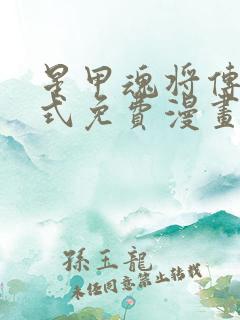 星甲魂将傳
式免費漫畫
孫玉龍
未经同意禁止转载